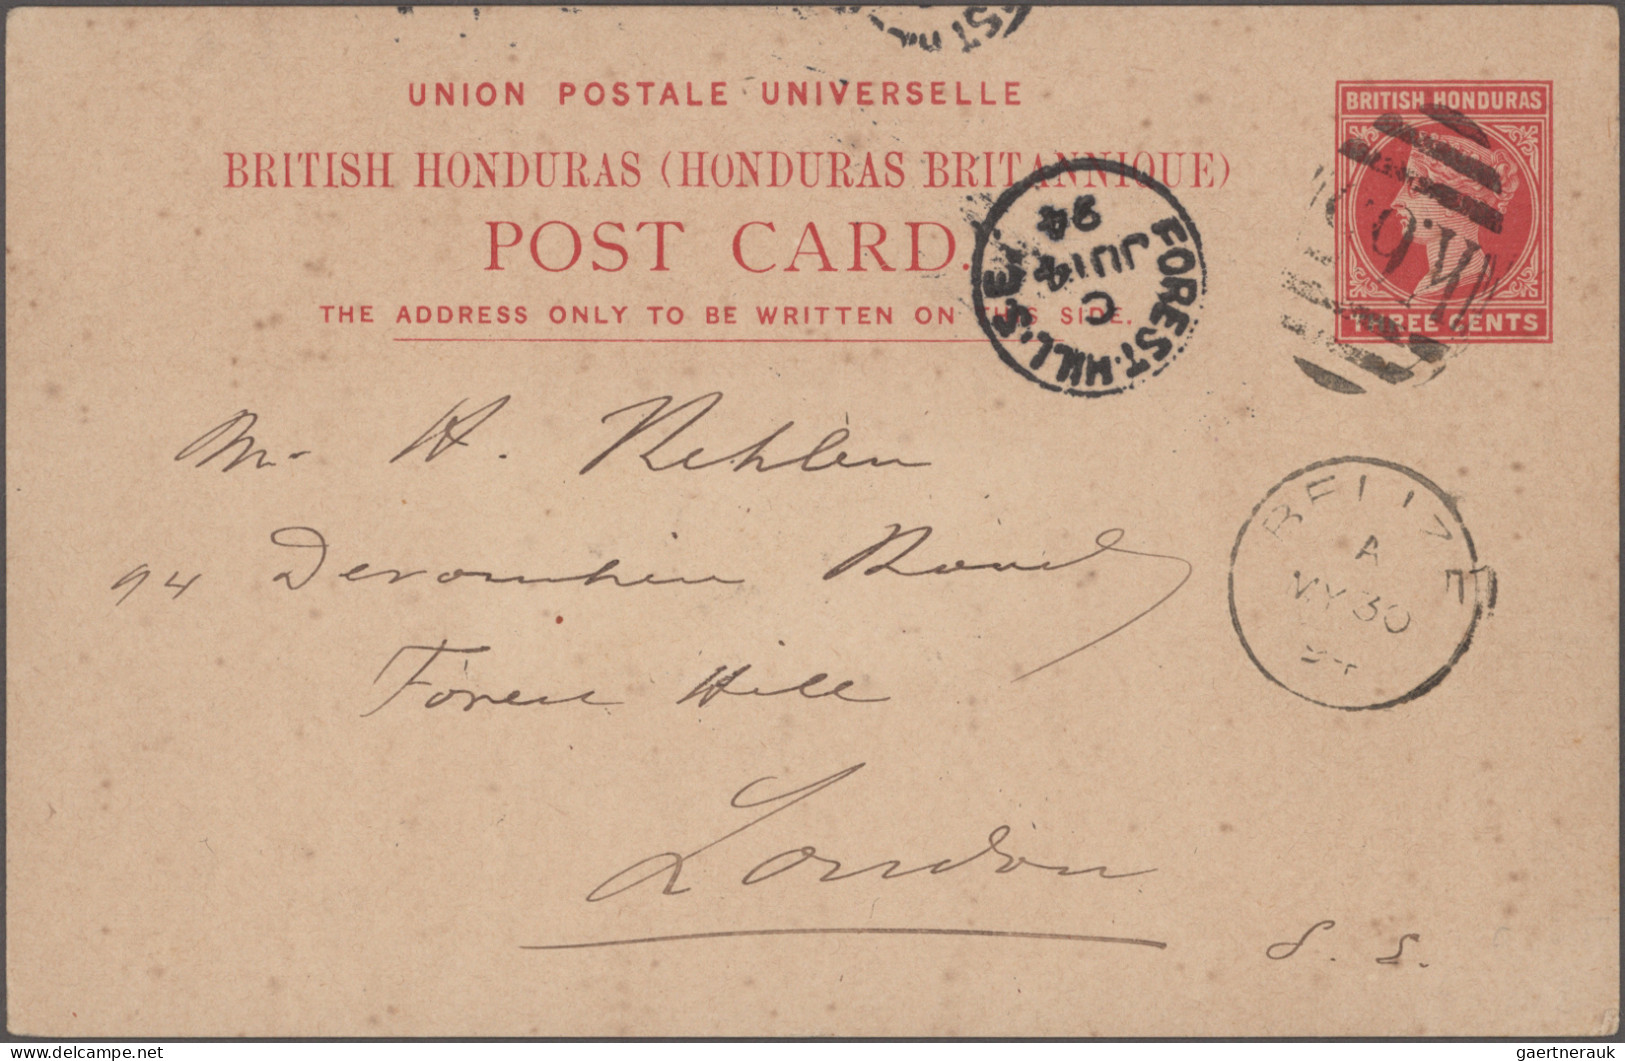 ST HILL
UNION POSTALE UNIVERSELLE
BRITISH HONDURAS (HONDURAS BRITANNIQUE)
POST CARD.
THE ADDRESS ONLY TO BE WRITTEN ON THIS SIDE.
BRITISH HONDURAS
THREE CENTS
FOREST-HILL.S.E.
C
JU 14
94
Mr. H. Rehlen
94 Devonshire Road
Forest Hill
London
S. E.
BELIZE
A
MY 30
94
gaertnerauk